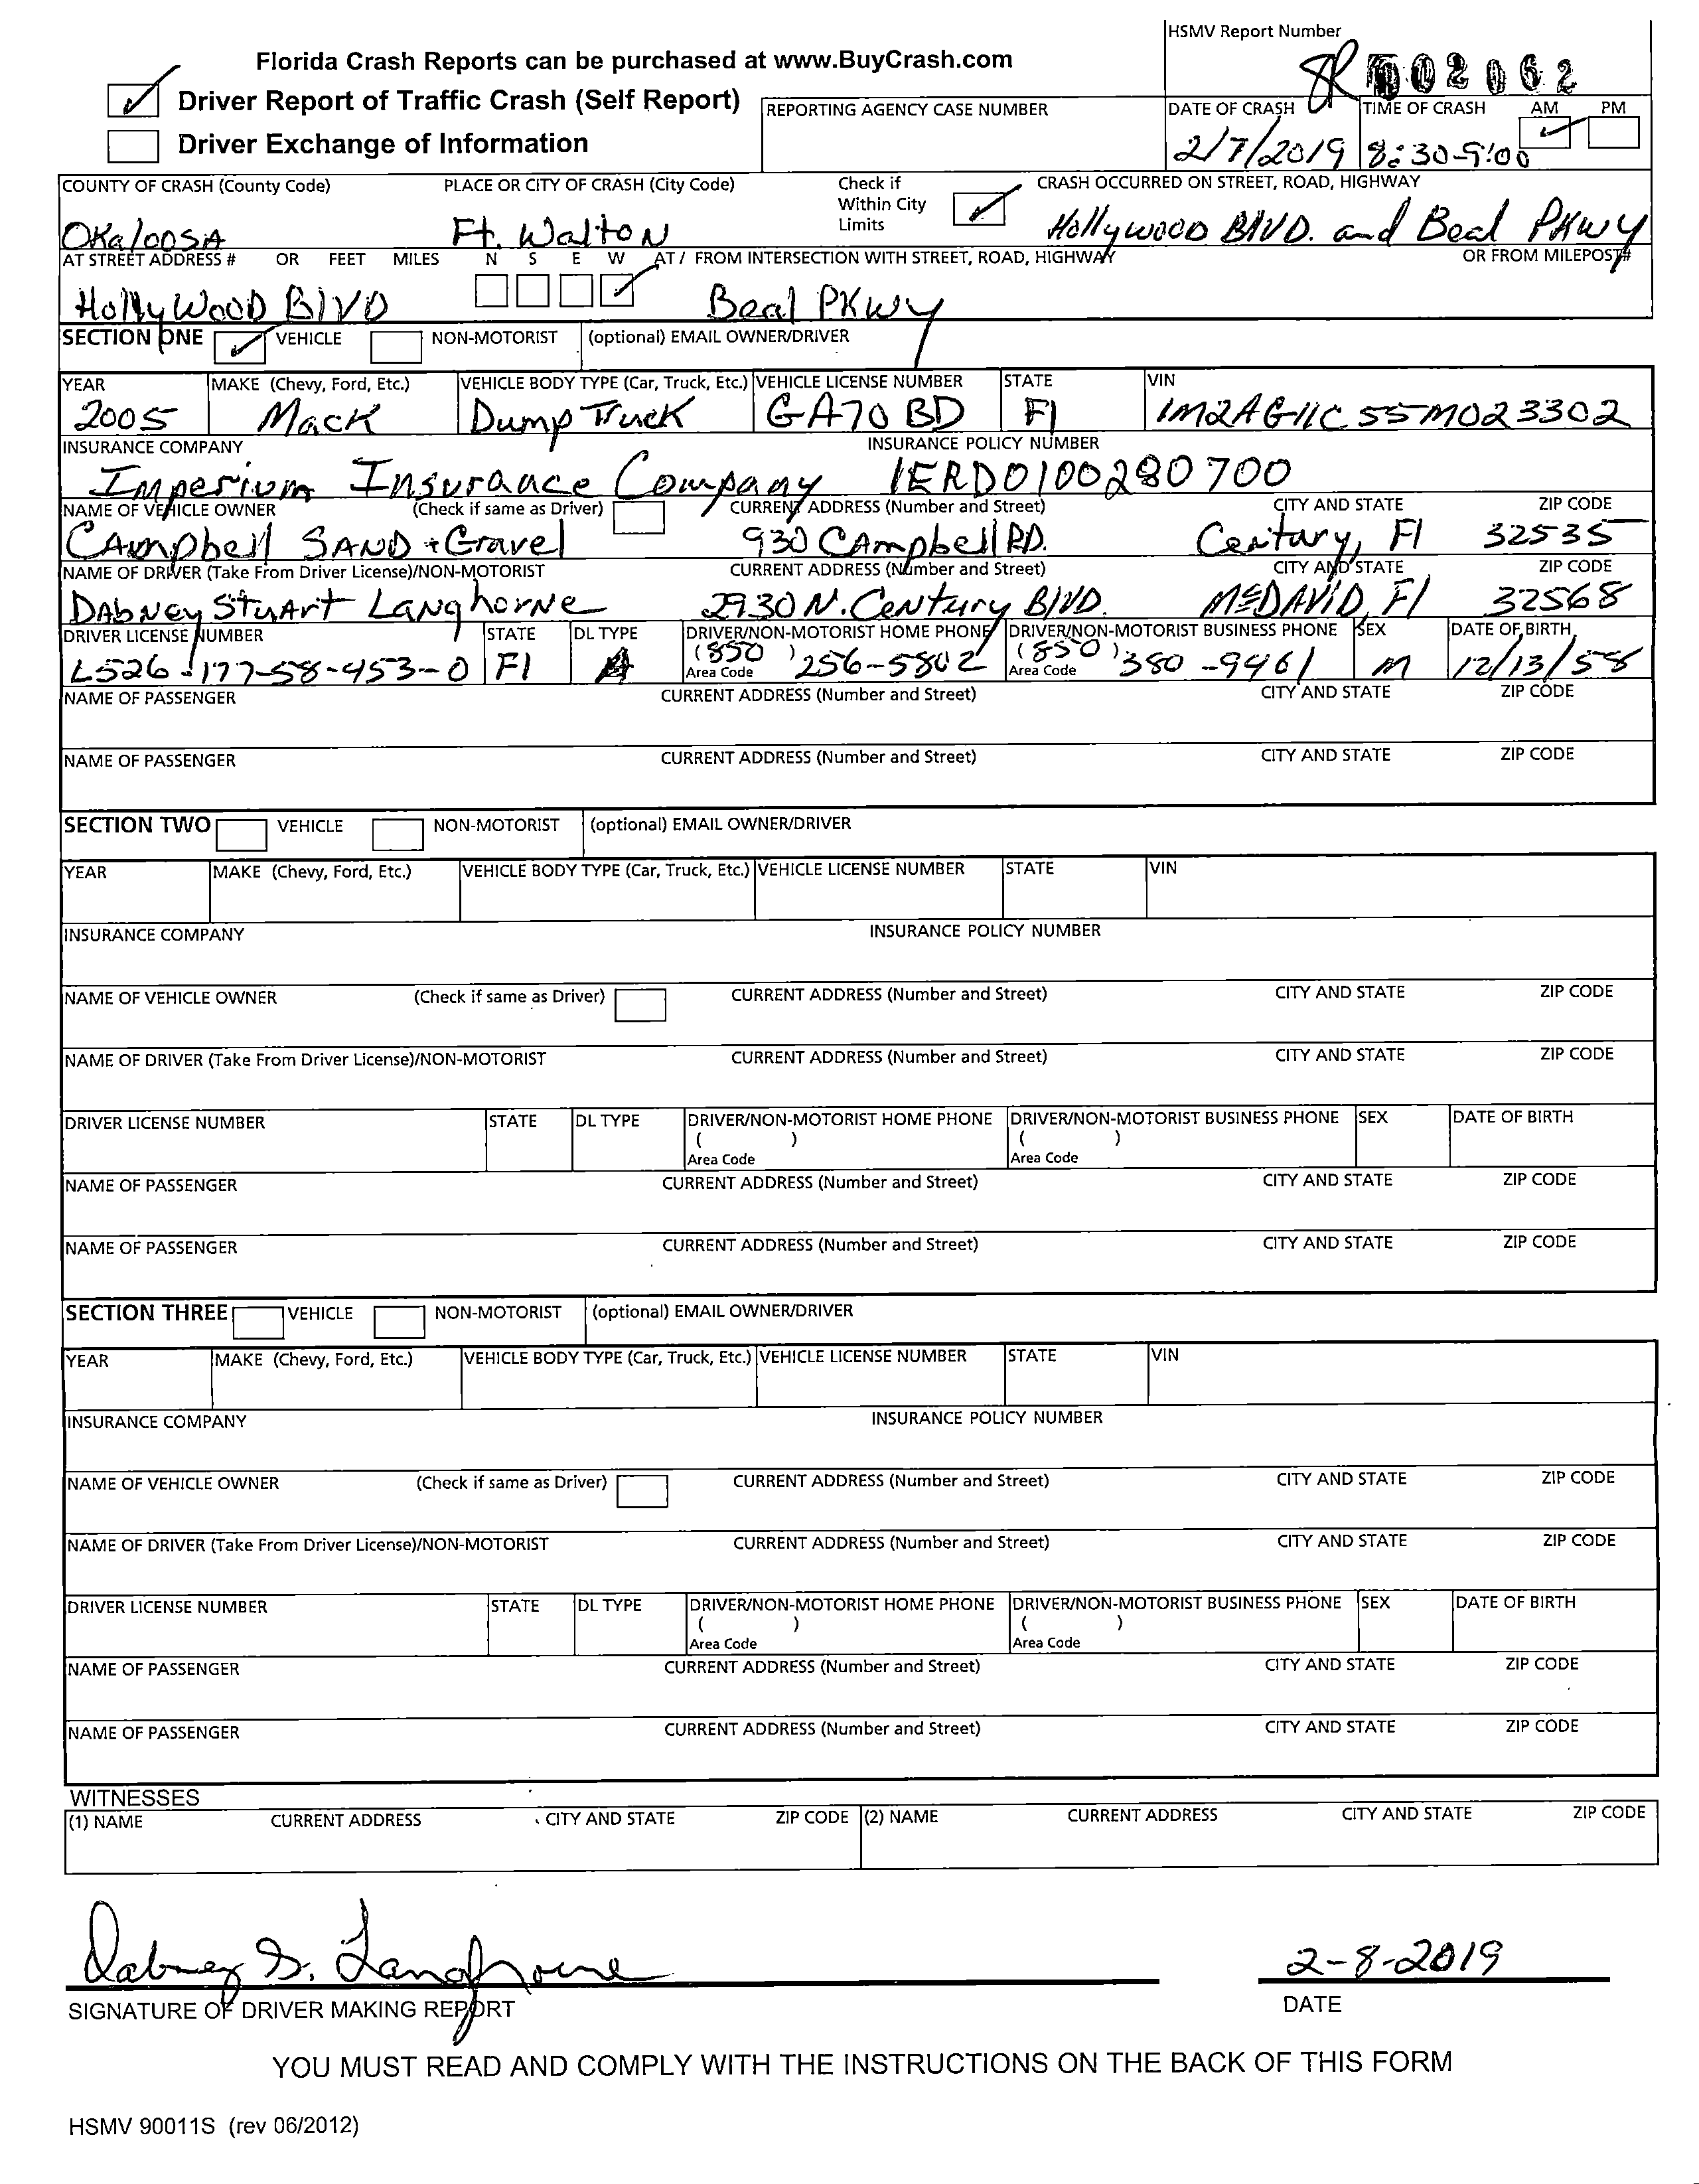 HSMV Report Number
Florida Crash Reports can be purchased at www.BuyCrash.com
Driver Report of Traffic Crash (Self Report)
Driver Exchange of Information
REPORTING AGENCY CASE NUMBER
02062
DATE OF CRASH TIME OF CRASH AM PM
2/7/2019 8:30-9:00
COUNTY OF CRASH (County Code) PLACE OR CITY OF CRASH (City Code) Check if Within City Limits CRASH OCCURRED ON STREET, ROAD, HIGHWAY
OKaloosA Ft. Walton Hollywood BlVD. and Beal PKwy
AT STREET ADDRESS # OR FEET MILES N S E W AT / FROM INTERSECTION WITH STREET, ROAD, HIGHWAY OR FROM MILEPOST#
HollyWooD BlVD Beal PKwy
SECTION ONE VEHICLE NON-MOTORIST (optional) EMAIL OWNER/DRIVER
YEAR MAKE (Chevy, Ford, Etc.) VEHICLE BODY TYPE (Car, Truck, Etc.) VEHICLE LICENSE NUMBER STATE VIN
2005 Mack Dump Truck GA70 BD Fl 1M2AG11C55M023302
INSURANCE COMPANY INSURANCE POLICY NUMBER
Imperium Insurance Company IERD0100280700
NAME OF VEHICLE OWNER (Check if same as Driver) CURRENT ADDRESS (Number and Street) CITY AND STATE ZIP CODE
CAmpbell SAND + Gravel 930 CAmpbell RD. Century, Fl 32535
NAME OF DRIVER (Take From Driver License)/NON-MOTORIST CURRENT ADDRESS (Number and Street) CITY AND STATE ZIP CODE
DAbney StuArt LANghorNe 2930 N. Century BlVD. McDAVID, Fl 32568
DRIVER LICENSE NUMBER STATE DL TYPE DRIVER/NON-MOTORIST HOME PHONE DRIVER/NON-MOTORIST BUSINESS PHONE SEX DATE OF BIRTH
L526-177-58-453-0 Fl A (850) 256-5802 (850) 380-9461 M 12/13/58
Area Code Area Code
NAME OF PASSENGER CURRENT ADDRESS (Number and Street) CITY AND STATE ZIP CODE
NAME OF PASSENGER CURRENT ADDRESS (Number and Street) CITY AND STATE ZIP CODE
SECTION TWO VEHICLE NON-MOTORIST (optional) EMAIL OWNER/DRIVER
YEAR MAKE (Chevy, Ford, Etc.) VEHICLE BODY TYPE (Car, Truck, Etc.) VEHICLE LICENSE NUMBER STATE VIN
INSURANCE COMPANY INSURANCE POLICY NUMBER
NAME OF VEHICLE OWNER (Check if same as Driver) CURRENT ADDRESS (Number and Street) CITY AND STATE ZIP CODE
NAME OF DRIVER (Take From Driver License)/NON-MOTORIST CURRENT ADDRESS (Number and Street) CITY AND STATE ZIP CODE
DRIVER LICENSE NUMBER STATE DL TYPE DRIVER/NON-MOTORIST HOME PHONE DRIVER/NON-MOTORIST BUSINESS PHONE SEX DATE OF BIRTH
( ) ( )
Area Code Area Code
NAME OF PASSENGER CURRENT ADDRESS (Number and Street) CITY AND STATE ZIP CODE
NAME OF PASSENGER CURRENT ADDRESS (Number and Street) CITY AND STATE ZIP CODE
SECTION THREE VEHICLE NON-MOTORIST (optional) EMAIL OWNER/DRIVER
YEAR MAKE (Chevy, Ford, Etc.) VEHICLE BODY TYPE (Car, Truck, Etc.) VEHICLE LICENSE NUMBER STATE VIN
INSURANCE COMPANY INSURANCE POLICY NUMBER
NAME OF VEHICLE OWNER (Check if same as Driver) CURRENT ADDRESS (Number and Street) CITY AND STATE ZIP CODE
NAME OF DRIVER (Take From Driver License)/NON-MOTORIST CURRENT ADDRESS (Number and Street) CITY AND STATE ZIP CODE
DRIVER LICENSE NUMBER STATE DL TYPE DRIVER/NON-MOTORIST HOME PHONE DRIVER/NON-MOTORIST BUSINESS PHONE SEX DATE OF BIRTH
( ) ( )
Area Code Area Code
NAME OF PASSENGER CURRENT ADDRESS (Number and Street) CITY AND STATE ZIP CODE
NAME OF PASSENGER CURRENT ADDRESS (Number and Street) CITY AND STATE ZIP CODE
WITNESSES
(1) NAME CURRENT ADDRESS CITY AND STATE ZIP CODE (2) NAME CURRENT ADDRESS CITY AND STATE ZIP CODE
Dabney S. Langhorne 2-8-2019
SIGNATURE OF DRIVER MAKING REPORT DATE
YOU MUST READ AND COMPLY WITH THE INSTRUCTIONS ON THE BACK OF THIS FORM
HSMV 90011S (rev 06/2012)